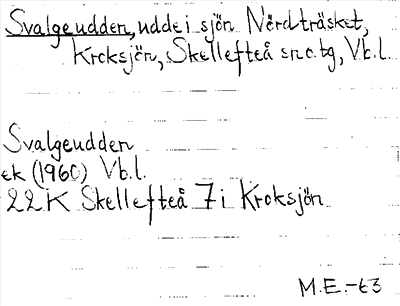 Svalgeudden, udde i sjön Nordträsket,
Kroksjön, Skellefteå sn o. tg, Vb.l.
Svalgeudden
ek (1960) Vb.l.
22K Skellefteå 7i Kroksjön
M.E.-63